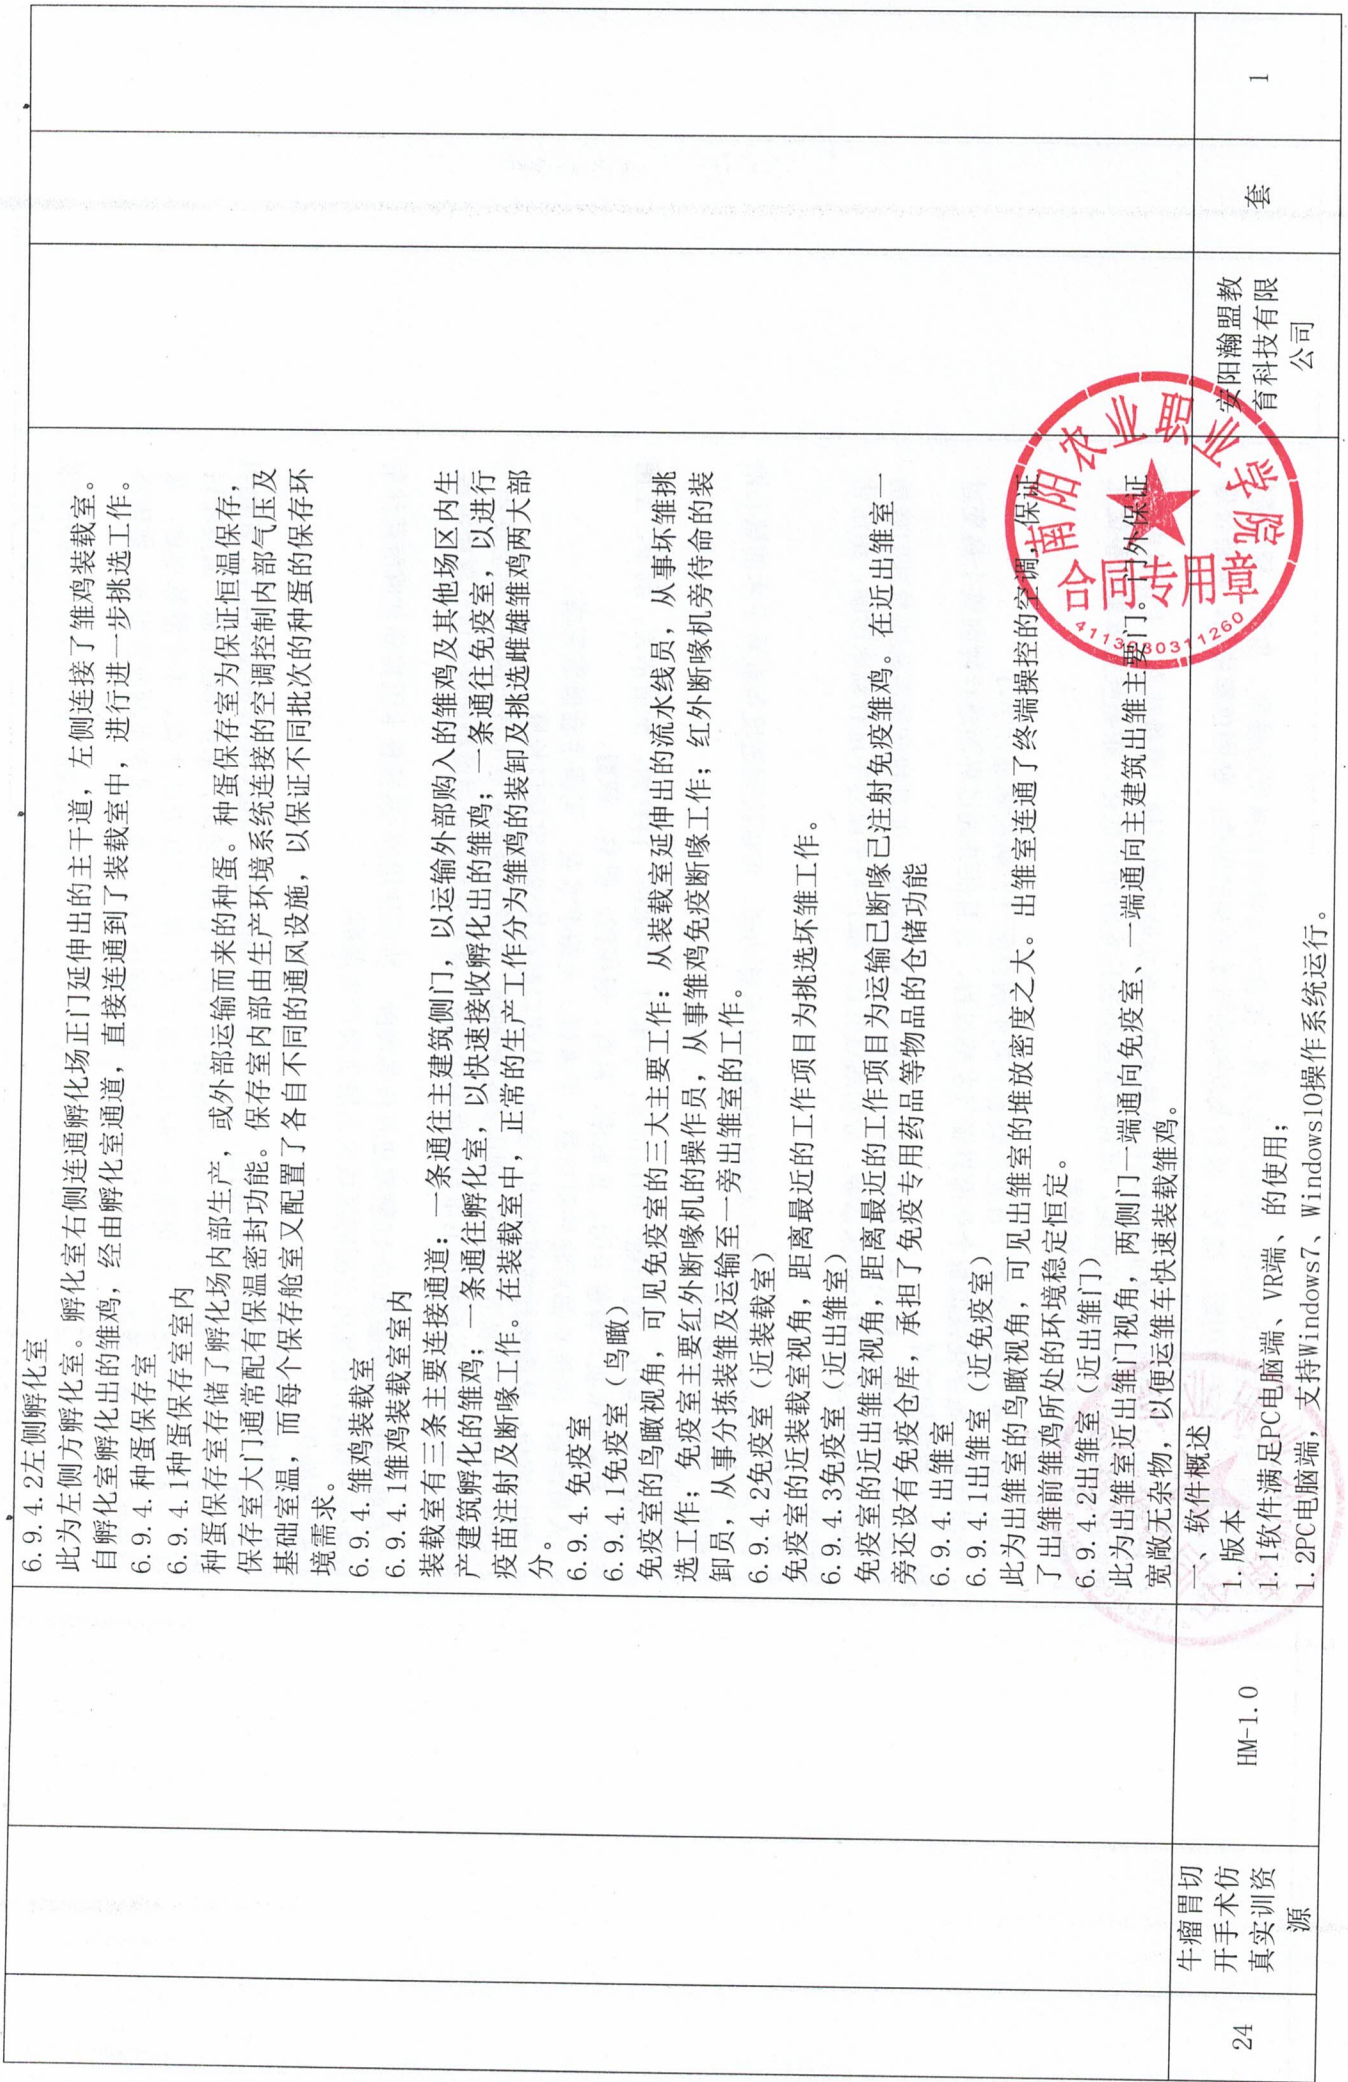 6.9.4.2左侧孵化室
此为左侧方孵化室。孵化室右侧连通孵化场正门延伸出的主干道，左侧连接了雏鸡装载室。
自孵化室孵化出的雏鸡，经由孵化室通道，直接连通到了装载室中，进行进一步挑选工作。
6.9.4.种蛋保存室
6.9.4.1种蛋保存室室内
种蛋保存室存储了孵化场内部生产，或外部运输而来的种蛋。种蛋保存室为保证恒温保存，
保存室大门通常配有保温密封功能。保存室内部由生产环境系统连接的空调控制内部气压及
基础室温，而每个保存舱室又配置了各自不同的通风设施，以保证不同批次的种蛋的保存环
境需求。
6.9.4.雏鸡装载室
6.9.4.1雏鸡装载室室内
装载室有三条主要连接通道：一条通往主建筑侧门，以运输外部购入的雏鸡及其他场区内生
产建筑孵化的雏鸡；一条通往孵化室，以快速接收孵化出的雏鸡；一条通往免疫室，以进行
疫苗注射及断喙工作。在装载室中，正常的生产工作分为雏鸡的装卸及挑选雌雄雏鸡两大部
分。
6.9.4.免疫室
6.9.4.1免疫室（鸟瞰）
免疫室的鸟瞰视角，可见免疫室的三大主要工作：从装载室延伸出的流水线员，从事坏雏挑
选工作；免疫室主要红外断喙机的操作员，从事雏鸡免疫断喙工作；红外断喙机旁待命的装
卸员，从事分拣装雏及运输至一旁出雏室的工作。
6.9.4.2免疫室（近装载室）
免疫室的近装载室视角，距离最近的工作项目为挑选坏雏工作。
6.9.4.3免疫室（近出雏室）
免疫室的近出雏室视角，距离最近的工作项目为运输已断喙已注射免疫雏鸡。在近出雏室一
旁还设有免疫仓库，承担了免疫专用药品等物品的仓储功能
6.9.4.出雏室
6.9.4.1出雏室（近免疫室）
此为出雏室的鸟瞰视角，可见出雏室的堆放密度之大。出雏室连通了终端操控的空调，保证
了出雏前雏鸡所处的环境稳定恒定。
6.9.4.2出雏室（近出雏门）
此为出雏室近出雏门视角，两侧门一端通向免疫室、一端通向主建筑出雏主要门。门外保证
宽敞无杂物，以便运雏车快速装载雏鸡。
24
牛瘤胃切
开手术仿
真实训资
源
HM-1.0
一、软件概述
1.版本
1.1软件满足PC电脑端、VR端、的使用；
1.2PC电脑端，支持Windows7、Windows10操作系统运行。
安阳瀚盟教
育科技有限
公司
套
1
南阳农业职业学院
合同专用章
4113030311260